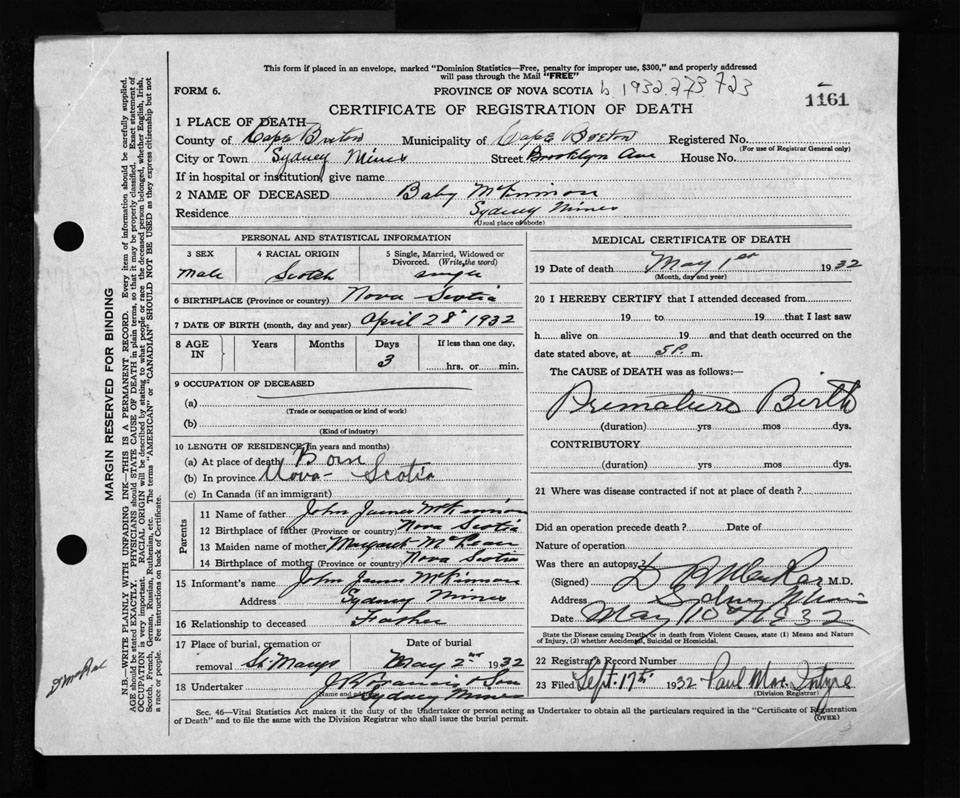 This form if placed in an envelope, marked "Dominion Statistics—Free, penalty for improper use, $300," and properly addressed
will pass through the Mail "FREE"
FORM 6.
PROVINCE OF NOVA SCOTIA b 1932 273 723
1161
CERTIFICATE OF REGISTRATION OF DEATH
1 PLACE OF DEATH
County of Cape Breton Municipality of Cape Breton Registered No.
(For use of Registrar General only)
City or Town Sydney Mines Street Brooklyn Ave House No.
If in hospital or institution, give name
2 NAME OF DECEASED Baby McKinnon
Residence Sydney Mines
(Usual place of abode)
PERSONAL AND STATISTICAL INFORMATION
3 SEX 4 RACIAL ORIGIN 5 Single, Married, Widowed or
Divorced. (Write the word)
Male Scotch single
6 BIRTHPLACE (Province or country) Nova Scotia
7 DATE OF BIRTH (month, day and year) April 28" 1932
8 AGE IN Years Months Days If less than one day,
3 hrs. or min.
9 OCCUPATION OF DECEASED
(a)
(Trade or occupation or kind of work)
(b)
(Kind of industry)
10 LENGTH OF RESIDENCE (in years and months)
(a) At place of death Born
(b) In province Nova Scotia
(c) In Canada (if an immigrant)
Parents
11 Name of father John James McKinnon
12 Birthplace of father (Province or country) Nova Scotia
13 Maiden name of mother Margaret McLean
14 Birthplace of mother (Province or country) Nova Scotia
15 Informant's name John James McKinnon
Address Sydney Mines
16 Relationship to deceased Father
17 Place of burial, cremation or Date of burial
removal St. Marys May 2nd 1932
18 Undertaker J. Francis & Son
(Name and address) Sydney Mines
MEDICAL CERTIFICATE OF DEATH
19 Date of death May 1st 1932
(Month, day and year)
20 I HEREBY CERTIFY that I attended deceased from
19 to 19 that I last saw
h alive on 19 and that death occurred on the
date stated above, at 5 P. m.
The CAUSE of DEATH was as follows:—
Premature Birth
(duration) yrs mos dys.
CONTRIBUTORY
(duration) yrs mos dys.
21 Where was disease contracted if not at place of death?
Did an operation precede death? Date of
Nature of operation
Was there an autopsy?
(Signed) M.D.
Address Sydney Mines
Date May 10th 1932
State the Disease causing Death, or in death from Violent Causes, state (1) Means and Nature
of Injury, (2) whether Accidental, Suicidal or Homicidal.
22 Registrar's Record Number
23 Filed Sept. 17th 1932 Paul Mac Intyre
(Division Registrar)
Sec. 46—Vital Statistics Act makes it the duty of the Undertaker or person acting as Undertaker to obtain all the particulars required in the "Certificate of Registration
of Death" and to file the same with the Division Registrar who shall issue the burial permit.
(OVER)
MARGIN RESERVED FOR BINDING
N.B.—WRITE PLAINLY WITH UNFADING INK—THIS IS A PERMANENT RECORD. Every item of information should be carefully supplied.
AGE should be stated EXACTLY. PHYSICIANS should STATE CAUSE OF DEATH in plain terms, so that it may be properly classified. Exact statement of
OCCUPATION is very important. RACIAL ORIGIN will be described by stating to what people or race the deceased person belonged, whether English, Irish,
Scotch, French, German, Russian, Ruthenian, etc. The terms "AMERICAN" or "CANADIAN" SHOULD NOT BE USED as they express citizenship but not
a race or people. See instructions on back of Certificate.